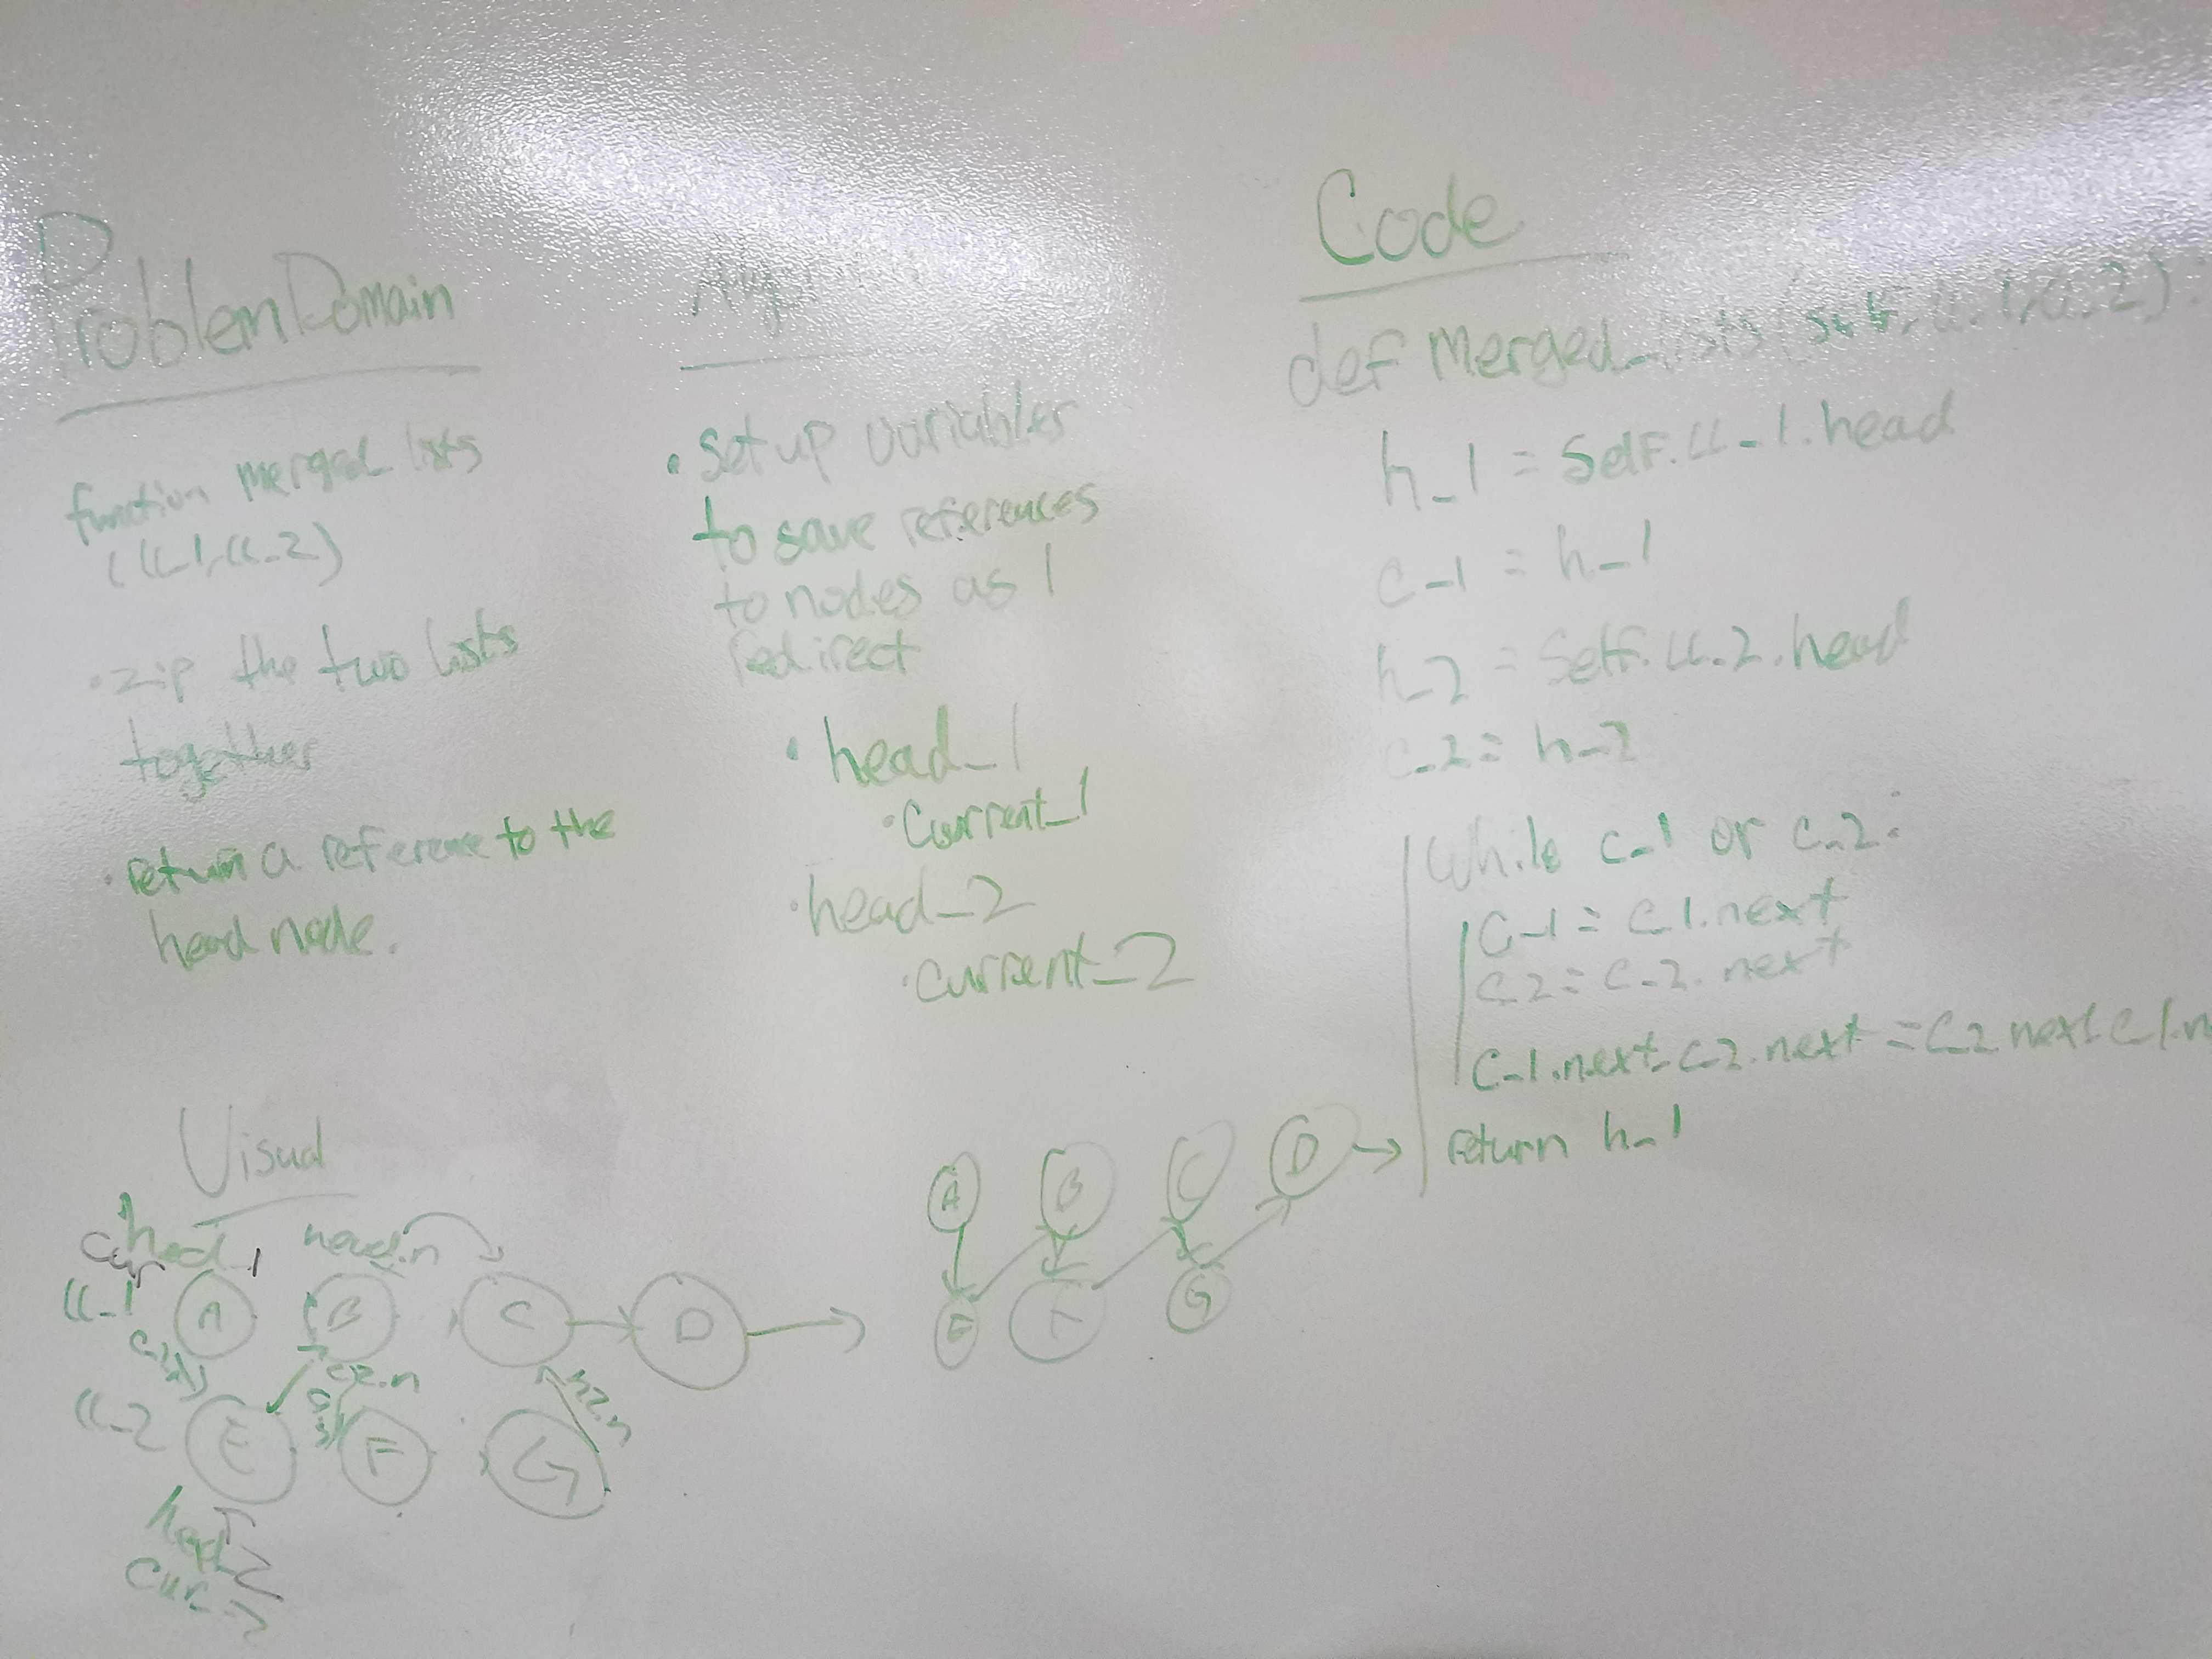 Problem Domain
function merged lists
(ll_1, ll_2)
• zip the two lists
together
• return a reference to the
head node.
Algo
• Set up variables
to save references
to nodes as I
redirect
• head_1
• Current_1
• head_2
• current_2
Code
def merged_lists(self, ll_1, ll_2):
h_1 = Self.ll_1.head
c_1 = h_1
h_2 = Self.ll_2.head
c_2 = h_2
While c_1 or c_2:
c_1 = c_1.next
c_2 = c_2.next
c_1.next, c_2.next = c_2.next, c_1.n
return h_1
Visual
head 1
curr
head.n
ll_1 A B C D
c2.n
h2.n
ll_2 E F G
head 2
cur 2
A B C D
E F G